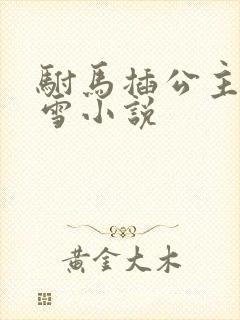 駙馬插公主
雪小說
黃金大木